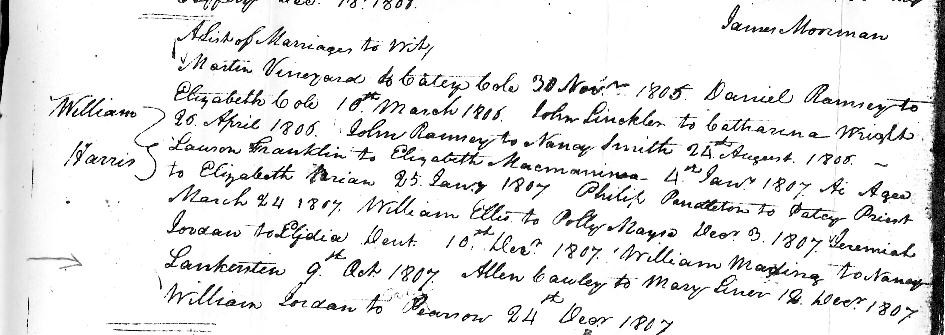 Dec. 18. 1806.
James Moorman
A List of Marriages to Wit,
Martin Vineyard to Catey Cole 30 Novr 1805 Daniel Ramsey to
William Elizabeth Cole 10th March 1806. John Linckler to Catharina Wright
26 April 1806. John Ramsey to Nancy Smith 24th August. 1806. –
Harris Lawson Franklin to Elizabeth 4th Janr 1807 Ai Agee
to Elizabeth 25 Jany 1807 Philip Pendleton to Patcy Priest
March 24 1807. William Ellis to Polly Mays Decr 3. 1807 Jeremiah
Jordan to Lydia Dent. 10th Decr 1807. William Mading to Nancy
Lankersten 9th Oct 1807 Allen Cawley to Mary Liner 12 Decr 1807
William Jordan to Pearsow 24th Decr 1807